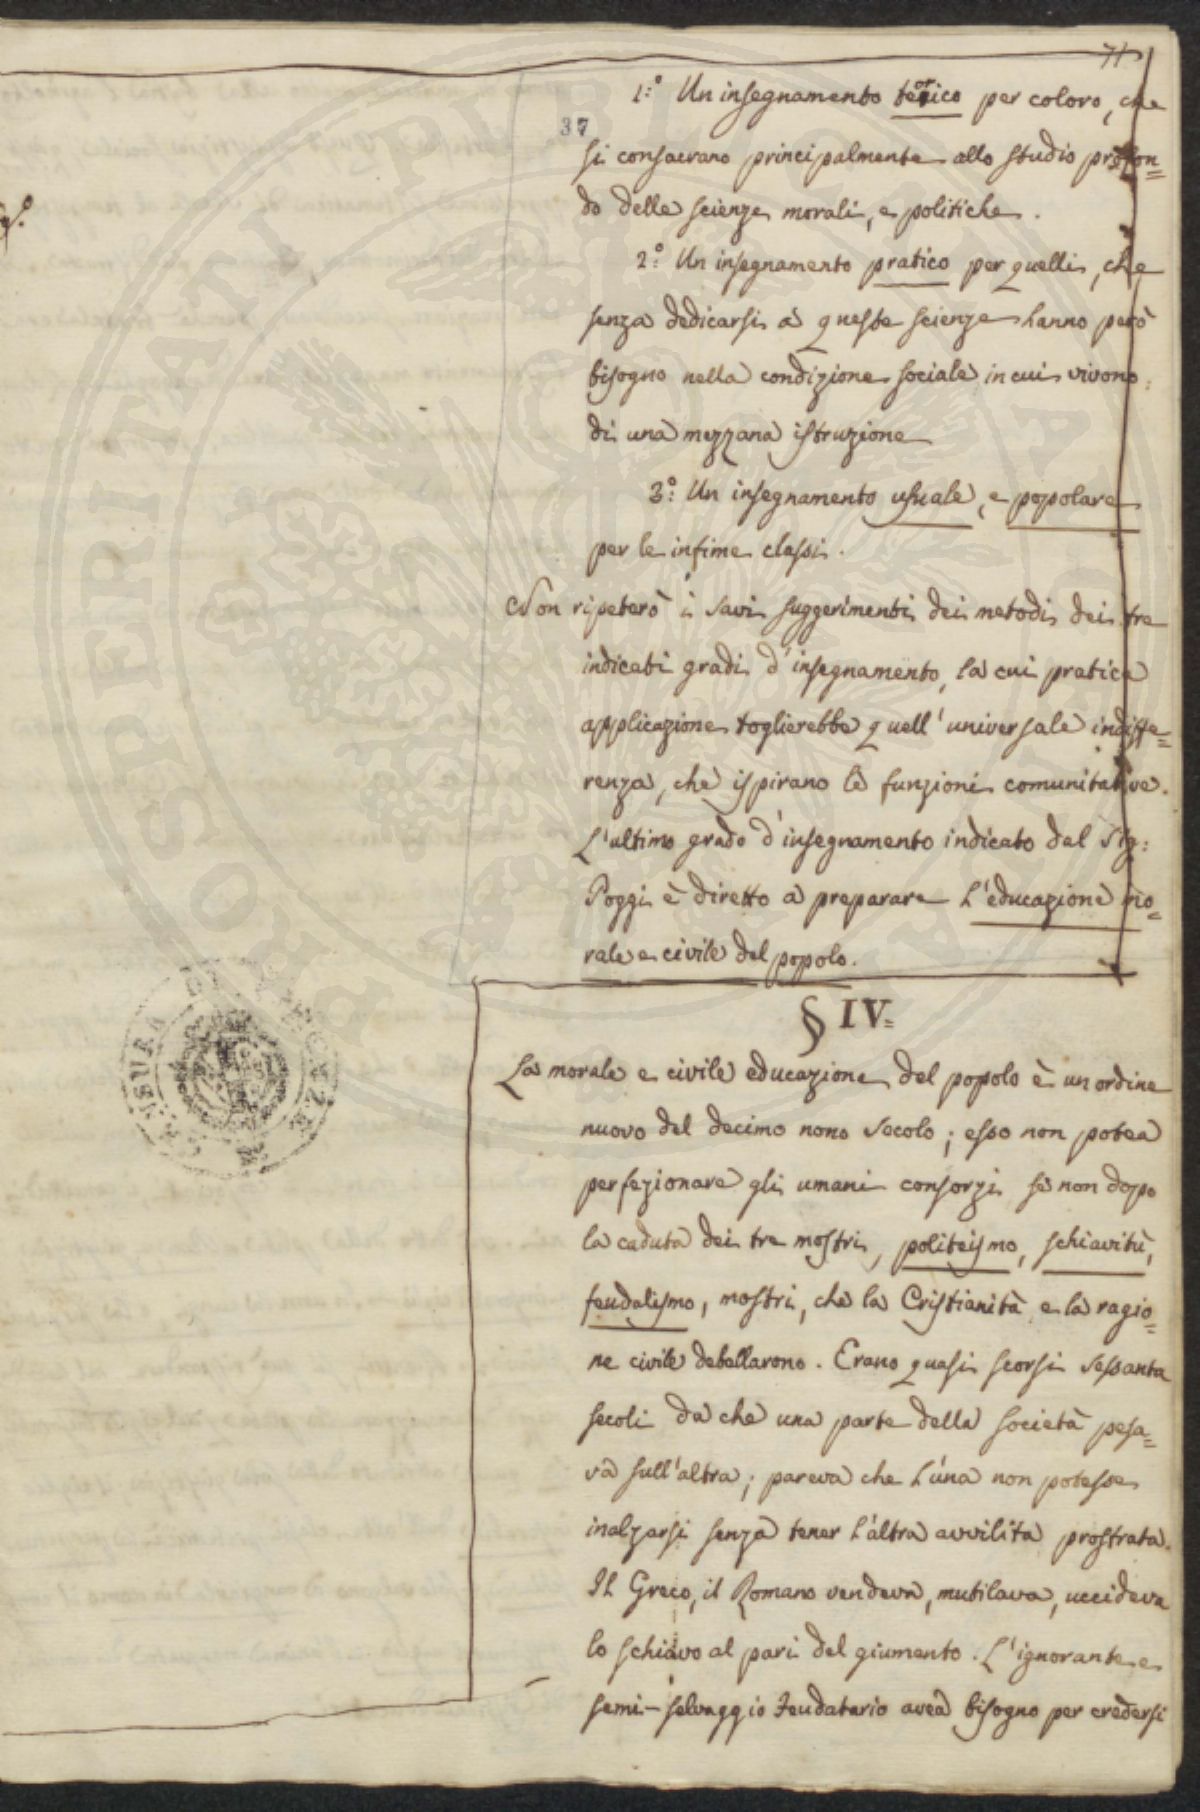 71
1.º Un insegnamento teorico per coloro, che
37
si consacrano principalmente allo studio profon=
do delle scienze morali, e politiche.
2.º Un insegnamento pratico per quelli, che
senza dedicarsi a queste scienze hanno però
bisogno nella condizione sociale in cui vivono
di una mezzana istruzione
3.º Un insegnamento usuale, e popolare
per le infime classi.
Non ripeterò i savi suggerimenti dei metodi dei tre
indicati gradi d'insegnamento, la cui pratica
applicazione toglierebbe quell'universale indiffe=
renza, che ispirano le funzioni comunitative.
L'ultimo grado d'insegnamento indicato dal Sig:
Poggi è diretto a preparare l'educazione mo=
rale e civile del popolo.
§ IV=
La morale e civile educazione del popolo è un ordine
nuovo del decimo nono secolo; esso non potea
perfezionare gli umani consorzi se non dopo
la caduta dei tre mostri, politeismo, schiavitù,
feudalismo, mostri, che la Cristianità e la ragio=
ne civile debellarono. Erano quasi scorsi sessanta
secoli da che una parte della società pesa=
va sull'altra; pareva che l'una non potesse
inalzarsi senza tener l'altra avvilita prostrata.
Il Greco, il Romano vendeva, mutilava, uccideva
lo schiavo al pari del giumento. L'ignorante e
semi-selvaggio Feudatario avea bisogno per credersi
PROSPERITATI PUBLICAE
CENSURA DI FIRENZE